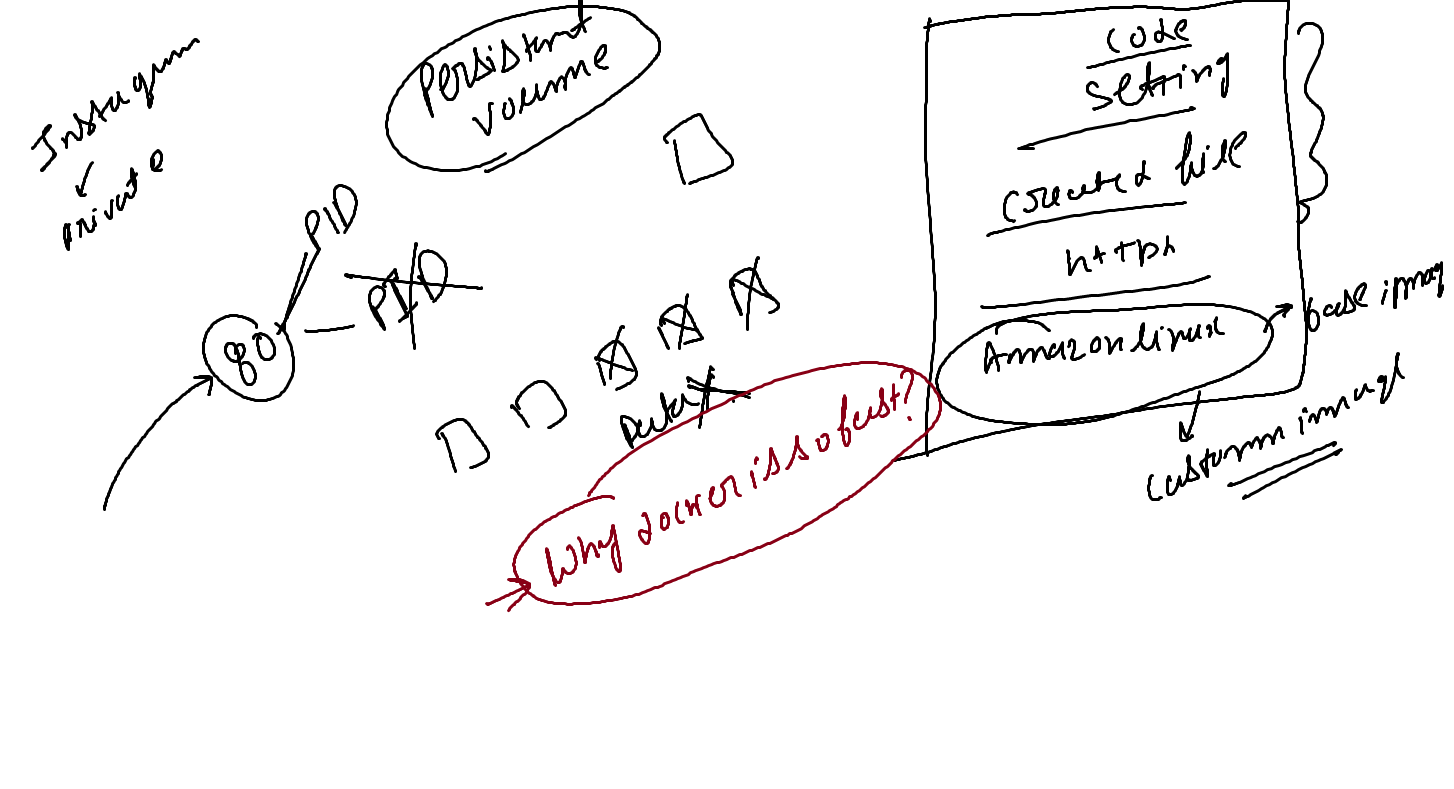 Instagram
private
Persistent
volume
PID
PID
80
Data
Why docker is so fast?
code
setting
created file
httpd
Amazon linux
base imag
custom image